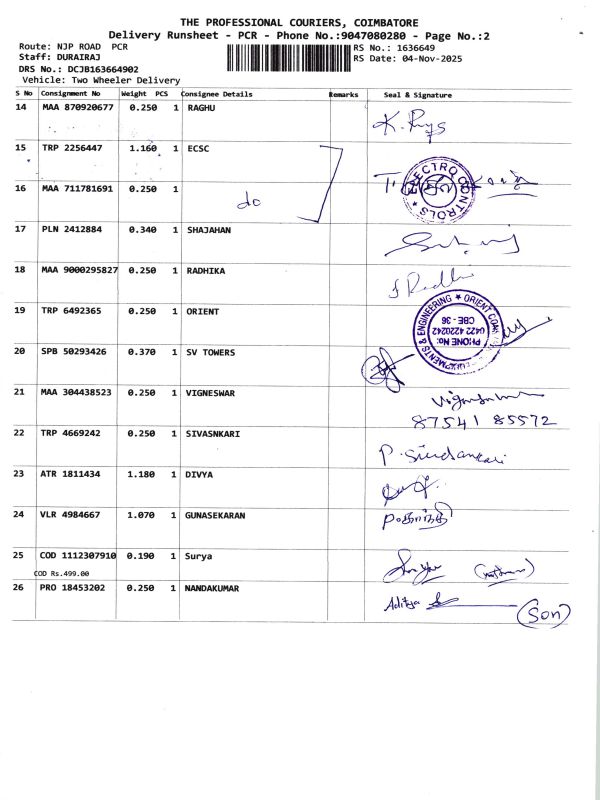 THE PROFESSIONAL COURIERS, COIMBATORE
Delivery Runsheet - PCR - Phone No.:9047080280 - Page No.:2
Route: NJP ROAD PCR
RS No.: 1636649
Staff: DURAIRAJ
RS Date: 04-Nov-2025
DRS No.: DCJB163664902
Vehicle: Two Wheeler Delivery
S No Consignment No Weight PCS Consignee Details Remarks Seal & Signature
14 MAA 870920677 0.250 1 RAGHU
15 TRP 2256447 1.160 1 ECSC
ELECTRO CONTROLS
16 MAA 711781691 0.250 1 do
17 PLN 2412884 0.340 1 SHAJAHAN
18 MAA 9000295827 0.250 1 RADHIKA
19 TRP 6492365 0.250 1 ORIENT
& ENGINEERING ★ ORIENT
PHONE No: 0422 4220242 CBE - 36
20 SPB 50293426 0.370 1 SV TOWERS
21 MAA 304438523 0.250 1 VIGNESWAR
87541 85572
22 TRP 4669242 0.250 1 SIVASNKARI
23 ATR 1811434 1.180 1 DIVYA
24 VLR 4984667 1.070 1 GUNASEKARAN
25 COD 1112307910 0.190 1 Surya
COD Rs.499.00
26 PRO 18453202 0.250 1 NANDAKUMAR Aditya (Son)